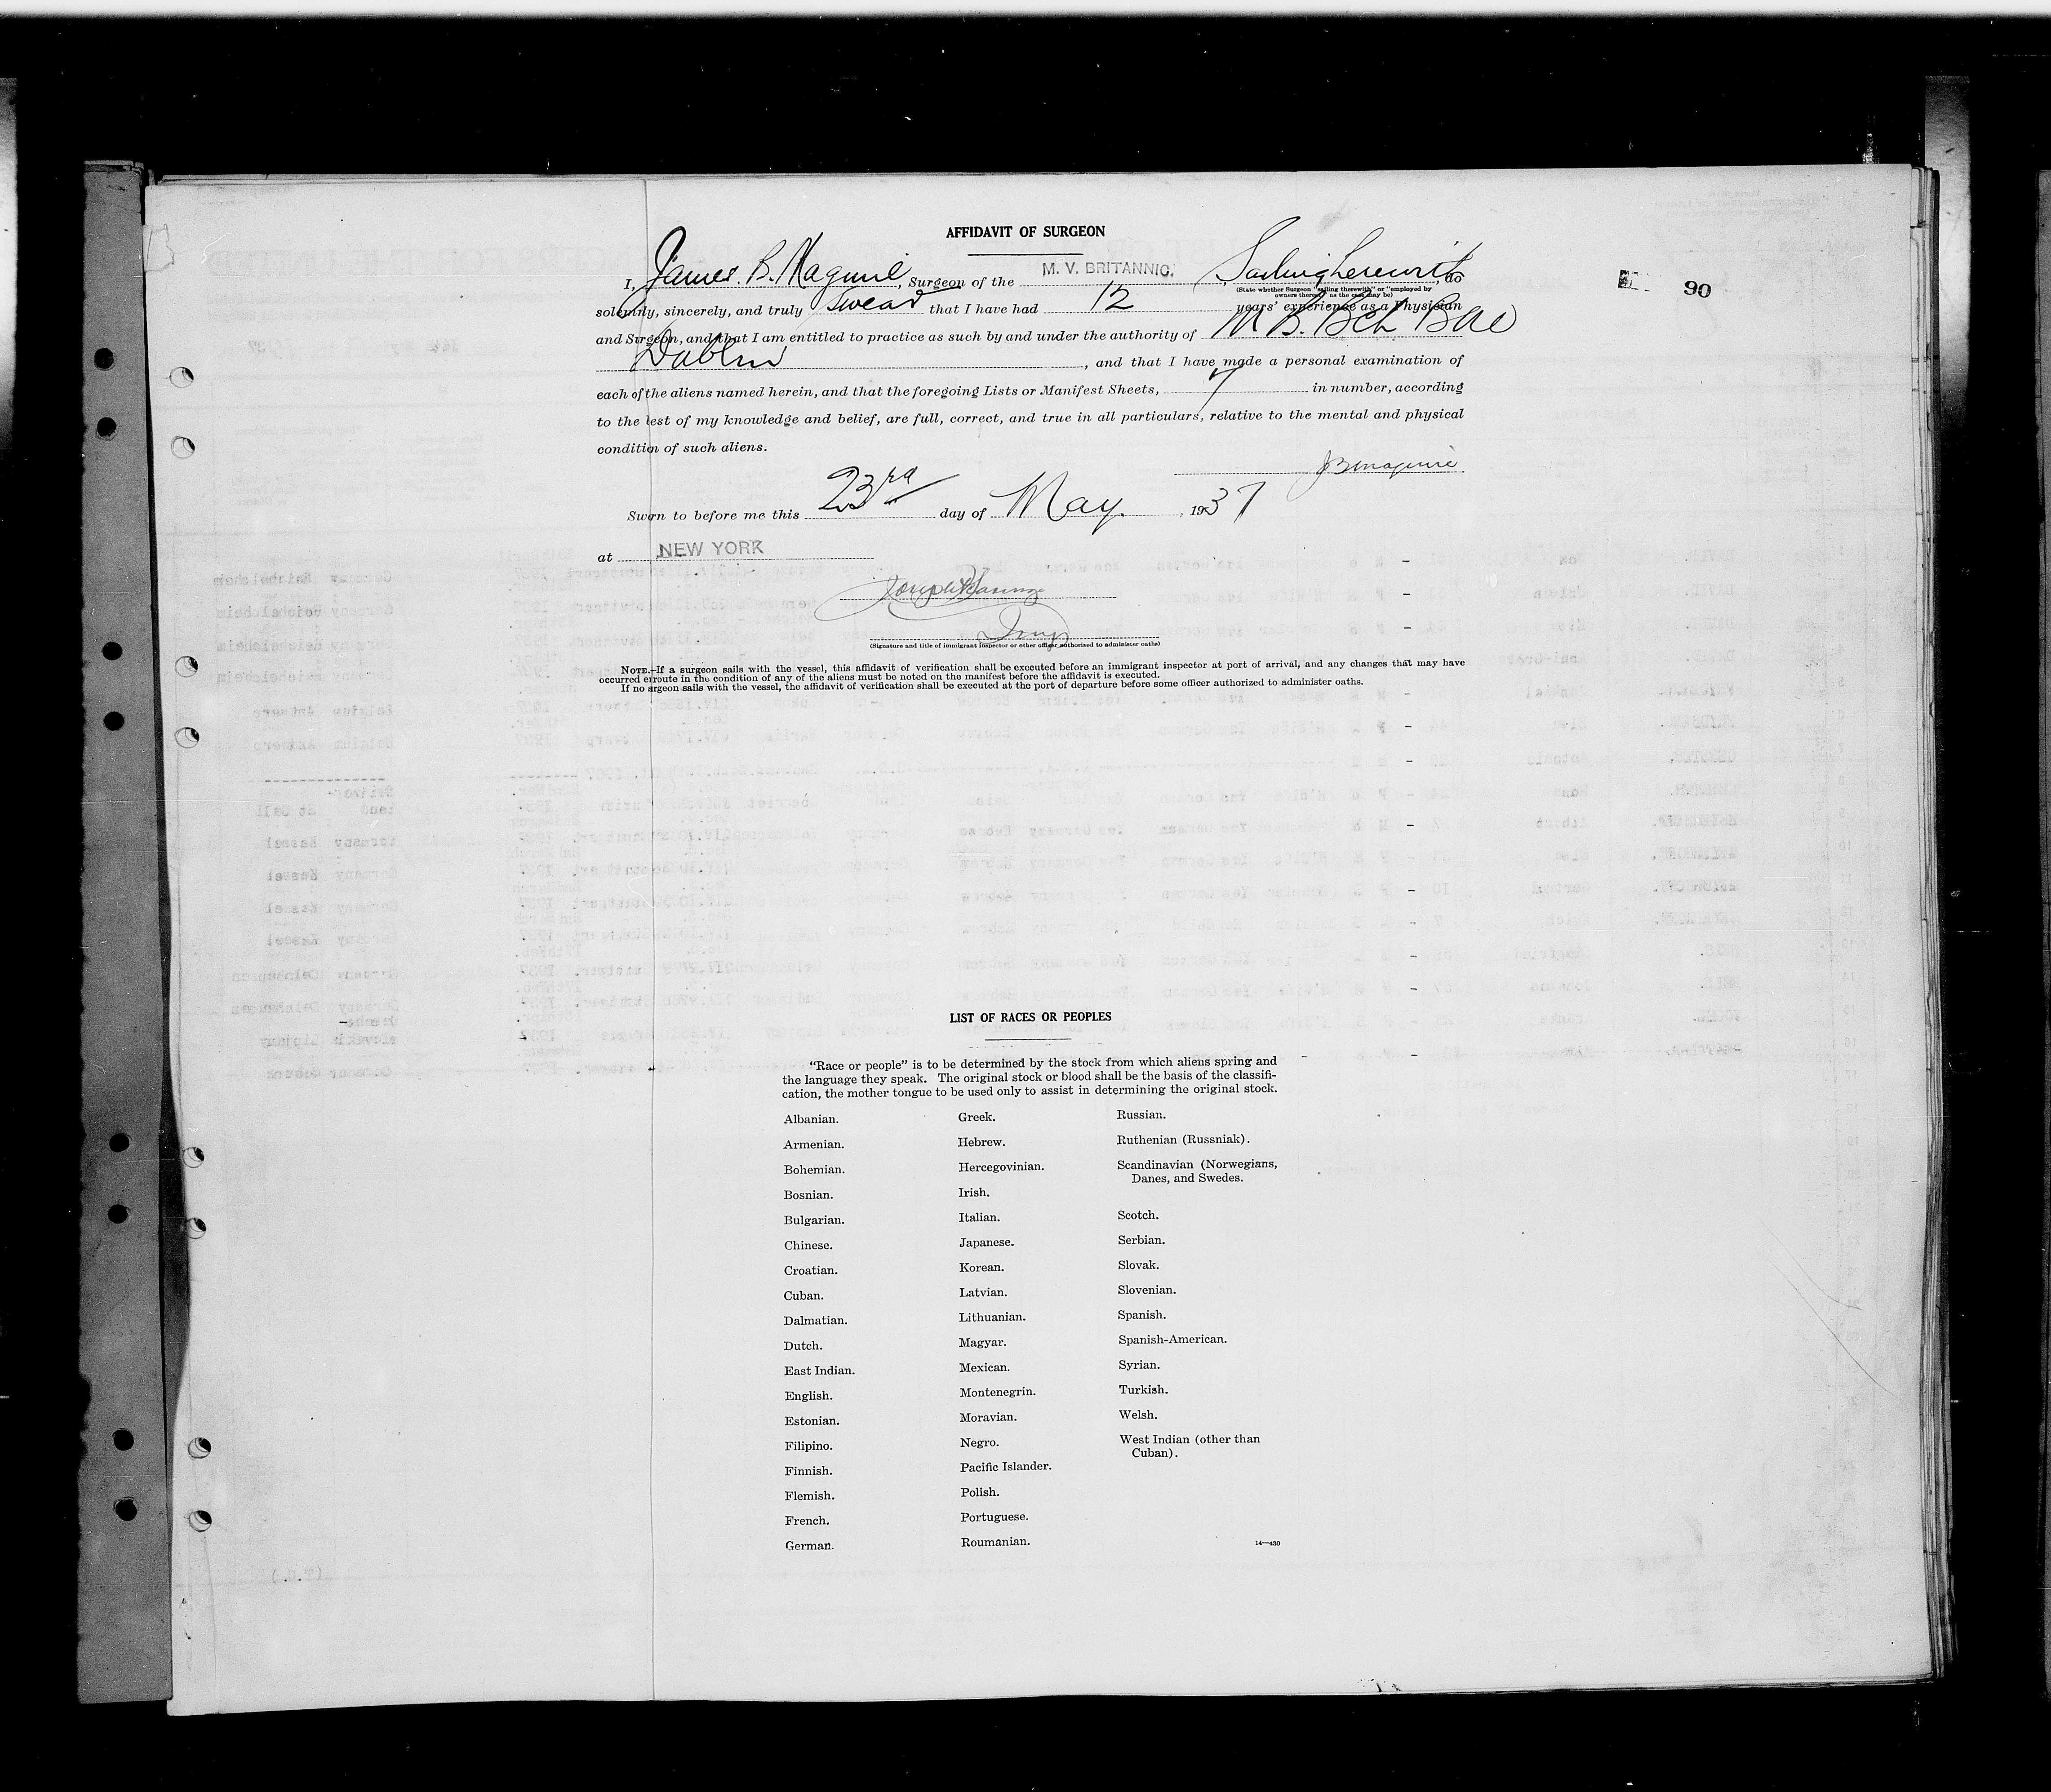 AFFIDAVIT OF SURGEON
90
I, James. B. Maguire, Surgeon of the M. V. BRITANNIC. , Sailing herewith, do
(State whether Surgeon "sailing therewith" or "employed by
owners thereof," as the case may be)
solemnly, sincerely, and truly swear that I have had 12 years' experience as a Physician
and Surgeon, and that I am entitled to practice as such by and under the authority of M B. Bch BAO
Dublin , and that I have made a personal examination of
each of the aliens named herein, and that the foregoing Lists or Manifest Sheets, 7 in number, according
to the best of my knowledge and belief, are full, correct, and true in all particulars, relative to the mental and physical
condition of such aliens.
JBMaguire
Sworn to before me this 23rd day of May. , 1937
at NEW YORK
(Signature and title of immigrant inspector or other officer authorized to administer oaths)
NOTE.—If a surgeon sails with the vessel, this affidavit of verification shall be executed before an immigrant inspector at port of arrival, and any changes that may have
occurred enroute in the condition of any of the aliens must be noted on the manifest before the affidavit is executed.
If no surgeon sails with the vessel, the affidavit of verification shall be executed at the port of departure before some officer authorized to administer oaths.
LIST OF RACES OR PEOPLES
"Race or people" is to be determined by the stock from which aliens spring and
the language they speak. The original stock or blood shall be the basis of the classifi-
cation, the mother tongue to be used only to assist in determining the original stock.
Albanian.
Armenian.
Bohemian.
Bosnian.
Bulgarian.
Chinese.
Croatian.
Cuban.
Dalmatian.
Dutch.
East Indian.
English.
Estonian.
Filipino.
Finnish.
Flemish.
French.
German.
Greek.
Hebrew.
Hercegovinian.
Irish.
Italian.
Japanese.
Korean.
Latvian.
Lithuanian.
Magyar.
Mexican.
Montenegrin.
Moravian.
Negro.
Pacific Islander.
Polish.
Portuguese.
Roumanian.
Russian.
Ruthenian (Russniak).
Scandinavian (Norwegians,
Danes, and Swedes.
Scotch.
Serbian.
Slovak.
Slovenian.
Spanish.
Spanish-American.
Syrian.
Turkish.
Welsh.
West Indian (other than
Cuban).
14—430